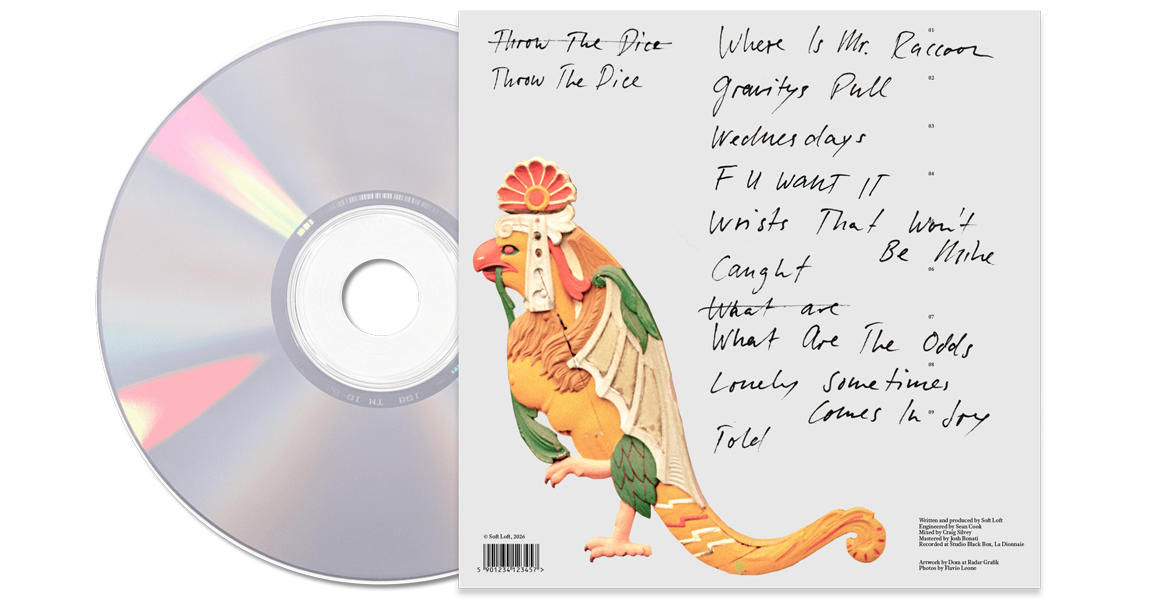 Throw The Dice
Throw The Dice
Where Is Mr. Raccoon
Gravitys Pull
Wednesdays
F U WANT IT
Wrists That Won't
Be Mine
Caught
What are
What Are The Odds
Lonely Sometimes
Comes In Joy
Told
01
02
03
04
06
07
08
09
© Soft Loft, 2026
5 901234 123457 >
Written and produced by Soft Loft
Engineered by Sean Cook
Mixed by Craig Silvey
Mastered by Josh Bonati
Recorded at Studio Black Box, La Dionnaie
Artwork by Dora at Radar Grafik
Photos by Flavio Leone